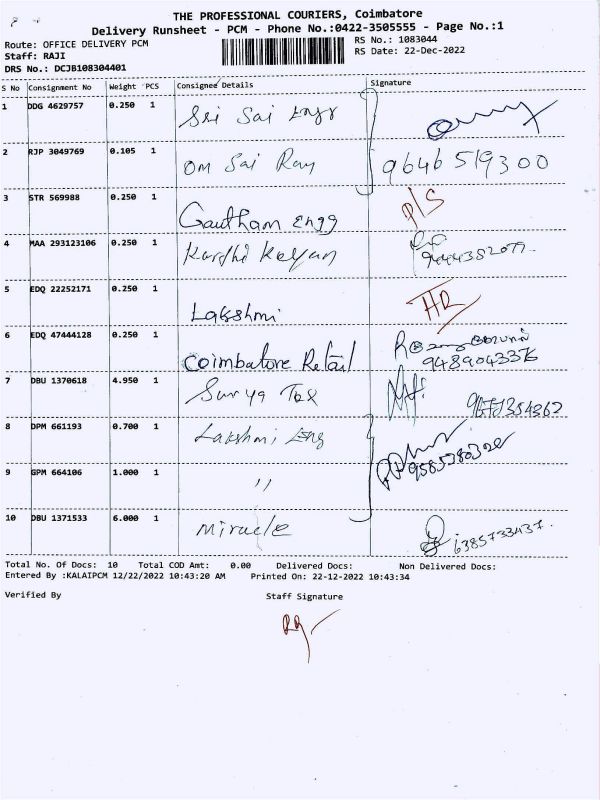 THE PROFESSIONAL COURIERS, Coimbatore
Delivery Runsheet - PCM - Phone No.:0422-3505555 - Page No.:1
Route: OFFICE DELIVERY PCM RS No.: 1083044
Staff: RAJI RS Date: 22-Dec-2022
DRS No.: DCJB108304401
S No Consignment No Weight PCS Consignee Details Signature
1 DDG 4629757 0.250 1 Sri Sai Engr
2 RJP 3049769 0.105 1 Om Sai Ram 9646519300
3 STR 569988 0.250 1 Gautham Engg P/S
4 MAA 293123106 0.250 1 Kalyan
5 EDQ 22252171 0.250 1 Lakshmi HR
6 EDQ 47444128 0.250 1 Coimbatore Retail 9489043376
7 DBU 1370618 4.950 1 Surya Tex
8 DPM 661193 0.700 1 Lakshmi Eng
9 GPM 664106 1.000 1 "
10 DBU 1371533 6.000 1 Miracle 6385733437.
Total No. Of Docs: 10 Total COD Amt: 0.00 Delivered Docs: Non Delivered Docs:
Entered By :KALAIPCM 12/22/2022 10:43:20 AM Printed On: 22-12-2022 10:43:34
Verified By Staff Signature